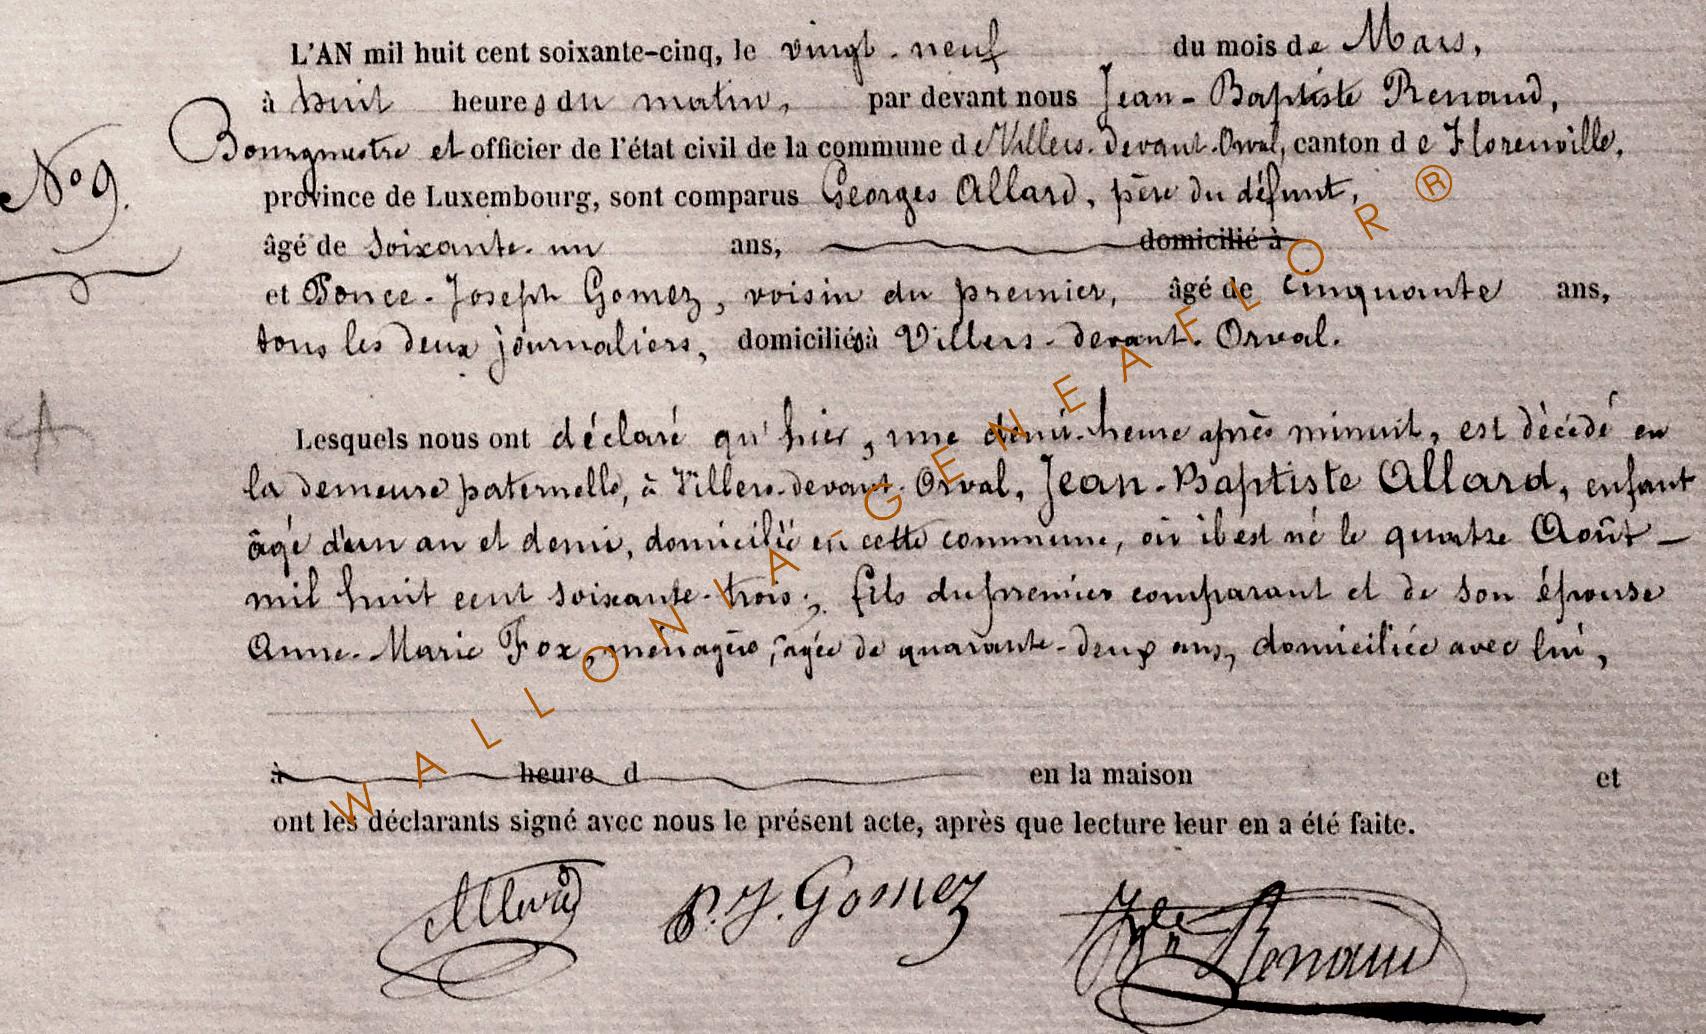 L'AN mil huit cent soixante-cinq, le vingt-neuf du mois de Mars,
à huit heures du matin, par devant nous Jean-Baptiste Renaud,
Bourgmestre et officier de l'état civil de la commune de Villers-devant-Orval, canton de Florenville,
N° 9.
province de Luxembourg, sont comparus Georges Allard, père du défunt,
âgé de soixante-un ans, domicilié à
et Ponce-Joseph Gomez, voisin du premier, âgé de cinquante ans,
tous les deux journaliers, domiciliés à Villers-devant-Orval.
Lesquels nous ont déclaré qu'hier, une demi-heure après minuit, est décédé en
la demeure paternelle, à Villers-devant-Orval, Jean-Baptiste Allard, enfant
âgé d'un an et demi, domicilié en cette commune, où il est né le quatre Août
mil huit cent soixante-trois, fils du premier comparant et de son épouse
Anne-Marie Fox, ménagère, âgée de quarante-deux ans, domiciliée avec lui,
à heure d en la maison et
ont les déclarants signé avec nous le présent acte, après que lecture leur en a été faite.
Allard P. J. Gomez Jn Bte Renaud
WALLONIAGENEAFLOR®